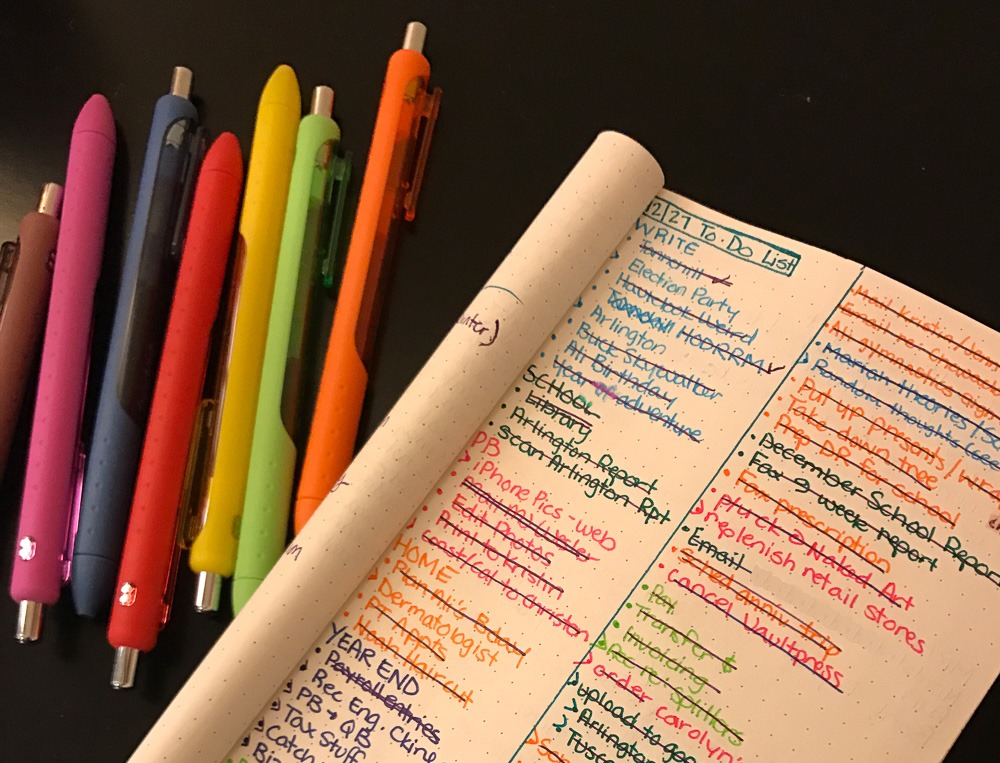 12/27 To-Do List
WRITE
Election Party
Hook look Weird
Randall HODRRMV
Arlington
Buck Skywalker
Ali Birthday
Year of adventure
SCHOOL
Library
Arlington Report
scan Arlington Rpt
PB
iPhone Pics - web
Edit Photos
Print to Kristin
Coast/Cal to Christen
HOME
Ali's Bday
Dermatologist
PT Appts
Noah haircut
YEAR END
Payroll entries
Rec Eng. Cking
PB → QB
Tax Stuff
Catch
Biz
Mail Kristin/
Ali gymnastics
Marian Theories
Random thoughts
Put up presents/
Take down tree
Prep DR for School
December School Report
Fax 9 week report
Fax prescription
Pluck & Naked Art
Replenish retail stores
Email
Sched anniv trip
cancel Vaultpress
Pay
Transfer $
Invoicing
order Carolyn's
upload to
Arlington
Tusc
unter)